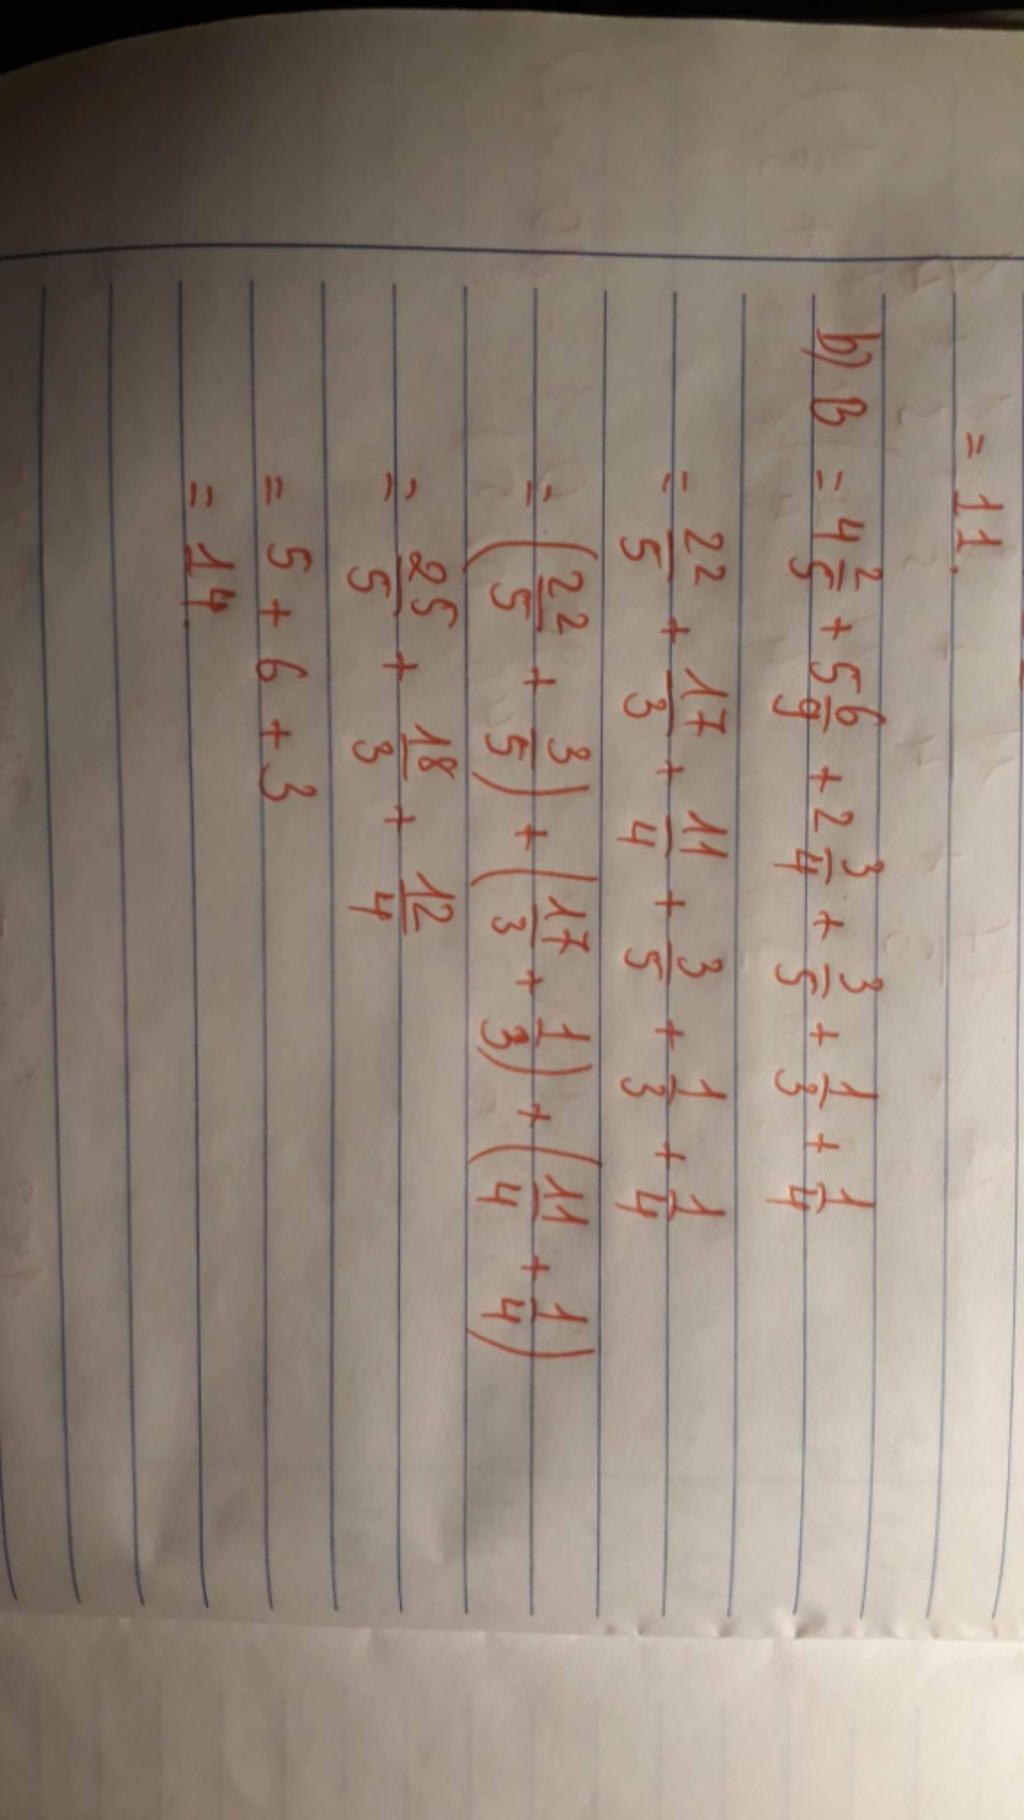 = 11.
b) B = 4 2/5 + 5 6/9 + 2 3/4 + 3/5 + 1/3 + 1/4
= 22/5 + 17/3 + 11/4 + 3/5 + 1/3 + 1/4
= (22/5 + 3/5) + (17/3 + 1/3) + (11/4 + 1/4)
= 25/5 + 18/3 + 12/4
= 5 + 6 + 3
= 14.